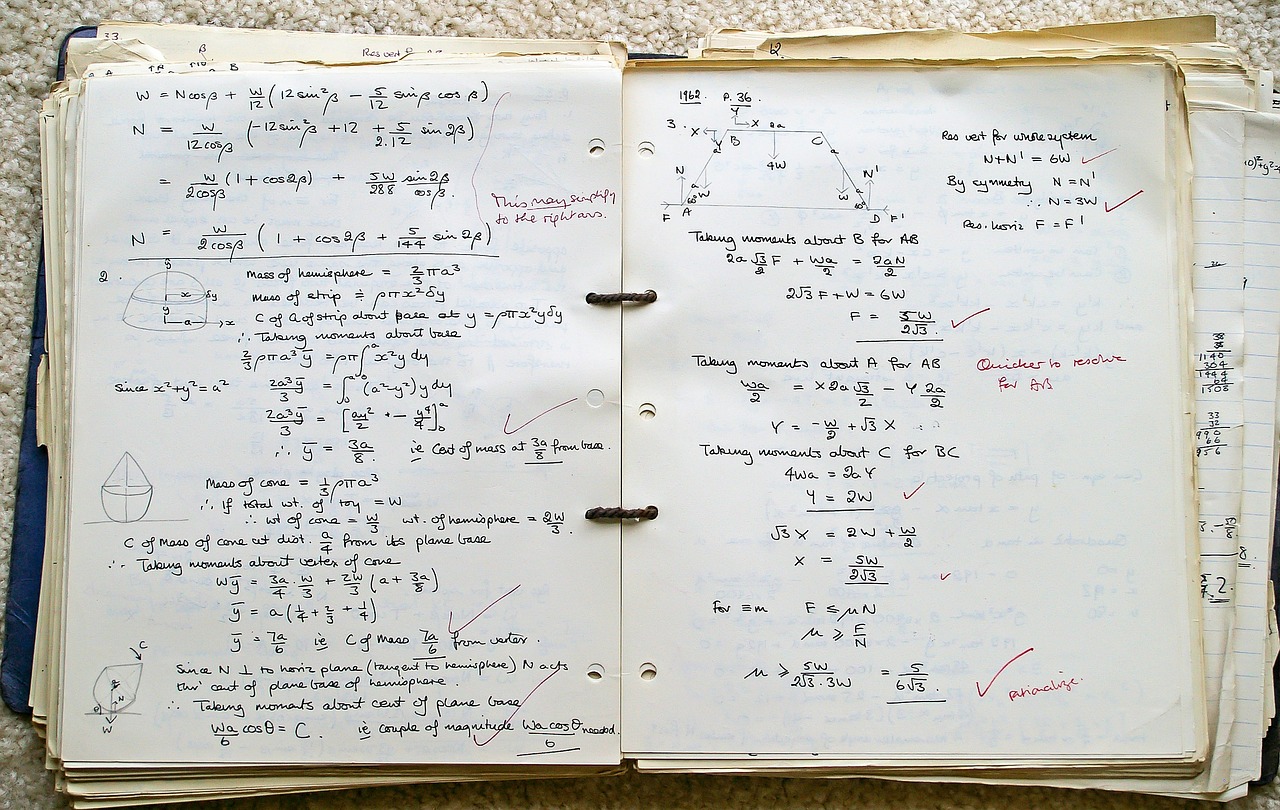 33.
β
Res vert
B
W = Ncosβ + W/12 (12sin²β − 5/12 sinβ cosβ)
N = W/12cosβ (−12sin²β + 12 + 5/2.12 sin2β)
= W/2cosβ (1 + cos2β) + 5W/288 sin2β/cosβ.
This may simplify
to the right ans.
N = W/2cosβ (1 + cos2β + 5/144 sin2β)
2.
y
x δy
y
a x
Mass of hemisphere = 2/3 πa³
Mass of strip ≑ ρπx²δy
C of G of strip about base at y = ρπx²yδy
∴ Taking moments about base
2/3 ρπa³ȳ = ρπ∫₀ᵃ x²y dy
Since x²+y²=a² 2a³ȳ/3 = ∫₀ᵃ (a²−y²)y dy
2a³ȳ/3 = [ay²/2 − y⁴/4]₀ᵃ
∴ ȳ = 3a/8 ie Cent of mass at 3a/8 from base.
Mass of cone = 1/3 ρπa³
∴ If total wt. of toy = W
∴ wt of cone = W/3 wt. of hemisphere = 2W/3.
C of Mass of cone at dist. a/4 from its plane base
∴ Taking moments about vertex of cone
Wȳ = 3a/4 . W/3 + 2W/3 (a + 3a/8)
ȳ = a(1/4 + 2/3 + 1/4)
ȳ = 7a/6 ie C of Mass 7a/6 from vertex.
C
N
θ
W
Since N ⊥ to horiz plane (tangent to hemisphere) N acts
thro' cent of plane base of hemisphere.
∴ Taking moments about cent of plane base
Wa/6 cosθ = C. ie couple of magnitude Wa cosθ/6 needed.
62.
1962. P.36.
3.
Y
X X 2a
B C
Y a a
4W
N a a N'
W W
60° 60°
F A D F'
Res vert for whole system
N+N' = 6W
By symmetry N = N'
∴ N = 3W
Res. horiz F = F'
Taking moments about B for AB
2a √3/2 F + Wa/2 = 2aN/2
2√3 F + W = 6W
F = 5W/2√3.
Taking moments about A for AB
Quicker to resolve
for AB
Wa/2 = X 2a √3/2 − Y 2a/2
Y = −W/2 + √3 X
Taking moments about C for BC
4Wa = 2aY
Y = 2W
√3 X = 2W + W/2
X = 5W/2√3
For ≡m F ≤ μN
μ ≥ F/N
μ ≥ 5W/2√3.3W = 5/6√3.
rationalize.
38
38
1140
304
1444
64
1508
33
32
990
66
956
8.
2.